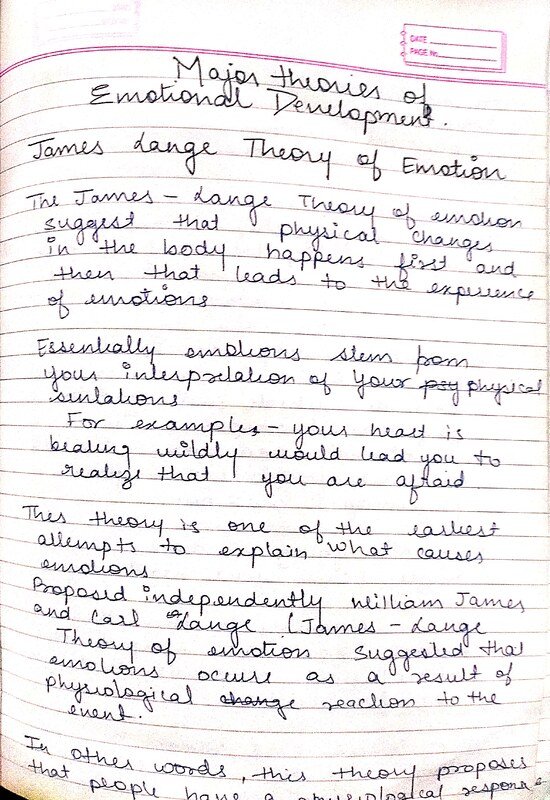 DATE
PAGE No.
Major theories of
Emotional Development.
James Lange Theory of Emotion
The James - Lange Theory of emotion
suggest that physical changes
in the body happens first and
then that leads to the experience
of emotions
Essentially emotions stem from
your interpretation of your physical
sensations
For example - your heart is
beating wildly would lead you to
realize that you are afraid
This theory is one of the earliest
attempts to explain what causes
emotions
Proposed independently William James
and Carl Lange (James - Lange
Theory of emotion suggested that
emotions occurs as a result of
physiological change reaction to the
event.
In other words, this theory proposes
that people have a physiological response